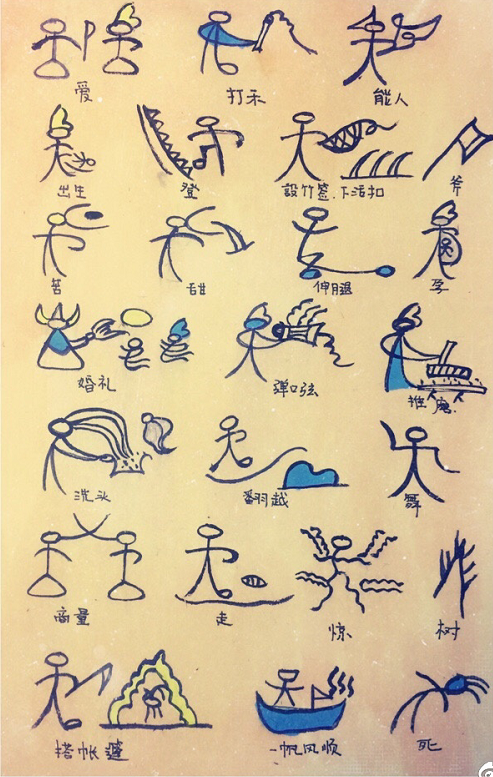 爱 打禾 能人
出生 登 設竹 下活扣 斧
苦 甜 伸腿 孕
婚礼 弹口弦 推
洗头 翻越 舞
商量 走 惊 树
搭帐篷 一帆风顺 死